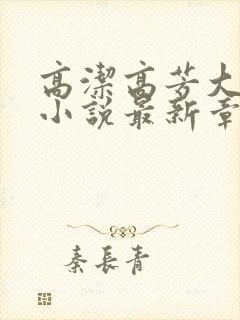 高潔高芳大
小說最新章
秦長青